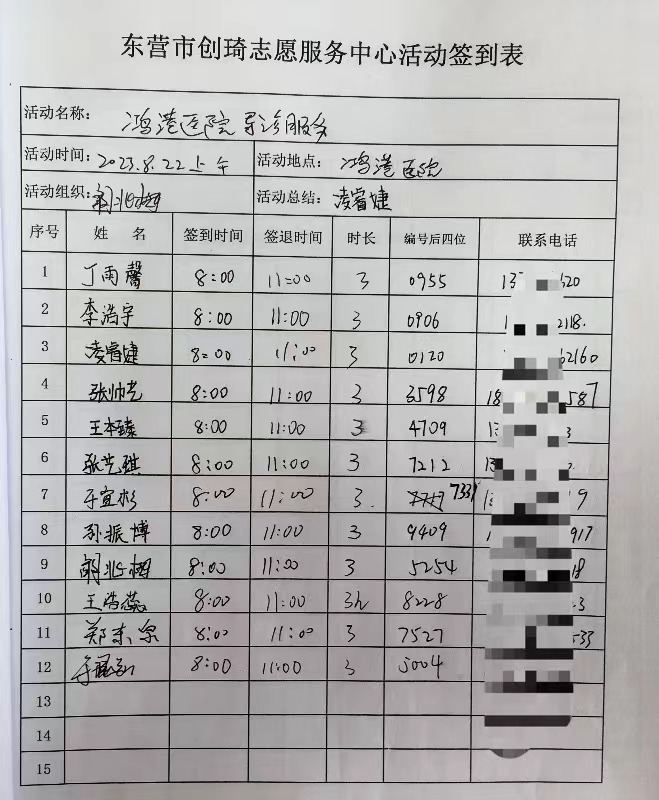 东营市创琦志愿服务中心活动签到表
活动名称: 鸿港医院导诊服务
活动时间: 2023.8.22上午 活动地点: 鸿港医院
活动组织: 活动总结: 凌睿婕
序号 姓 名 签到时间 签退时间 时长 编号后四位 联系电话
1 丁雨馨 8:00 11:00 3 0955 13 320
2 李浩宇 8:00 11:00 3 0906 1 2118.
3 凌睿婕 8:00 11:00 3 0120 62160
4 张帅艺 8:00 11:00 3 3598 18 587
5 王本臻 8:00 11:00 3 4709 13 3
6 张艺琪 8:00 11:00 3 7212 13
7 于宜杉 8:00 11:00 3. 7331 1 9
8 孙振博 8:00 11:00 3 9409 1 917
9 8:00 11:00 3 5254 18
10 王浩蕊 8:00 11:00 3h 8228 3
11 郑东泉 8:00 11:00 3 7527 33
12 8:00 11:00 3 5004
13
14
15